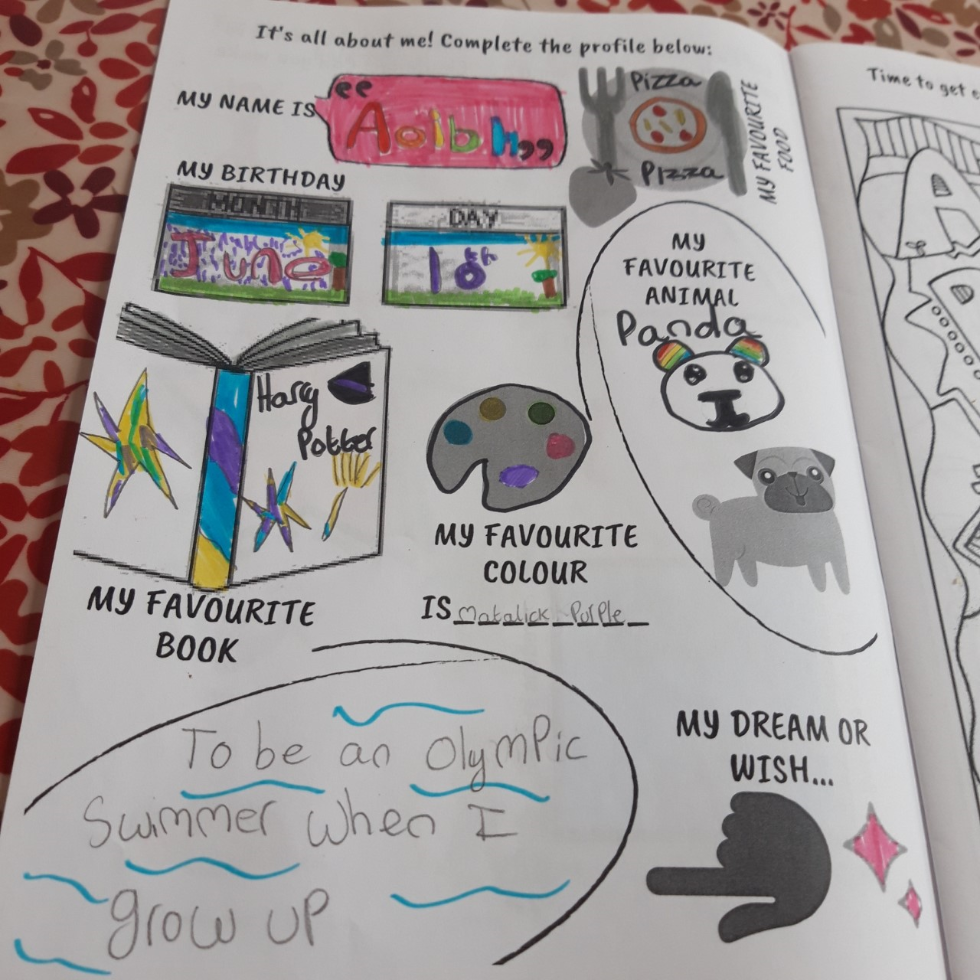 It's all about me! Complete the profile below:
MY NAME IS
"Aoibh"
Pizza
Pizza
MY FAVOURITE
FOOD
MY BIRTHDAY
MONTH
June
DAY
10th
MY
FAVOURITE
ANIMAL
Panda
Harry
Potter
MY FAVOURITE
BOOK
MY FAVOURITE
COLOUR
IS Matalick Purple
To be an Olympic
Swimmer when I
grow up
MY DREAM OR
WISH...
Time to get